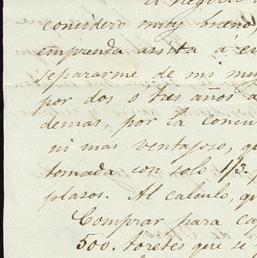 el negocio
considero muy bueno,
emprenda asista á
separarme de mi mu
por dos o tres años
demas, por la concu
ni mas ventajoso, qu
tomada con solo 1/3.
plazos. Al calculo, qu
Comprar para ca
500. toretes que se